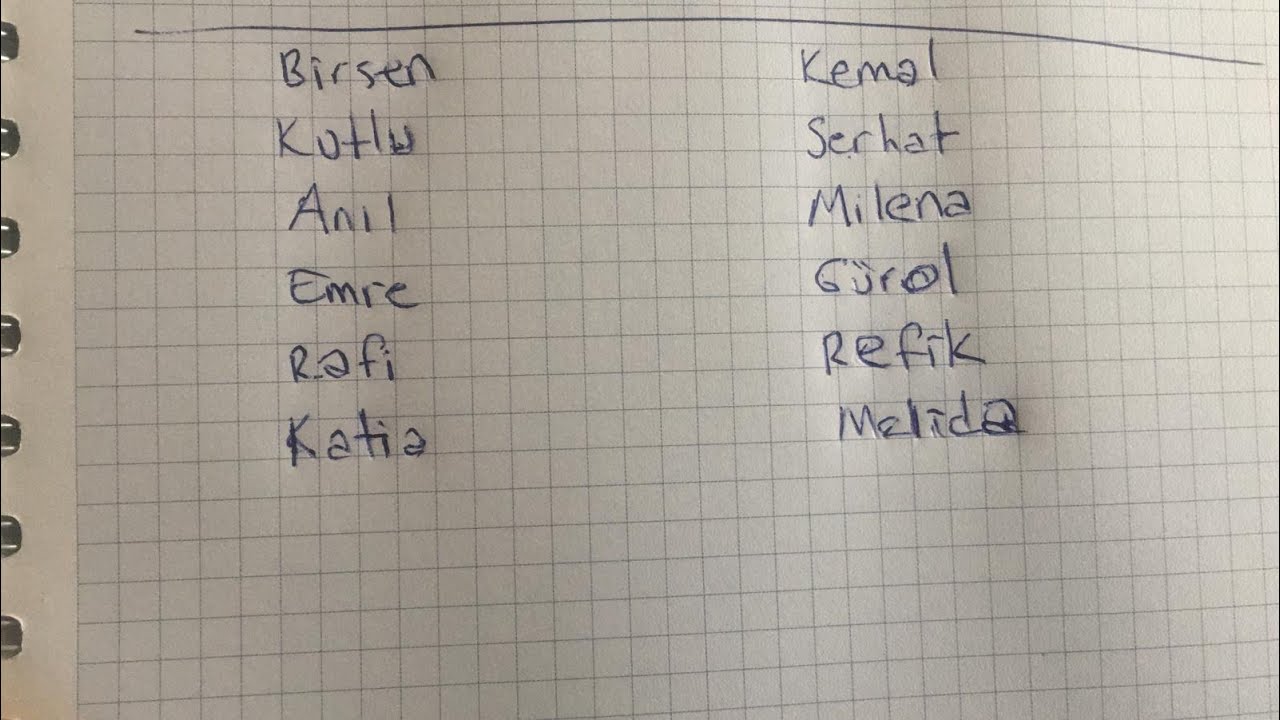 Birsen Kemal
Kutlu Serhat
Anıl Milena
Emre Gürol
Rafi Refik
Katia Melida